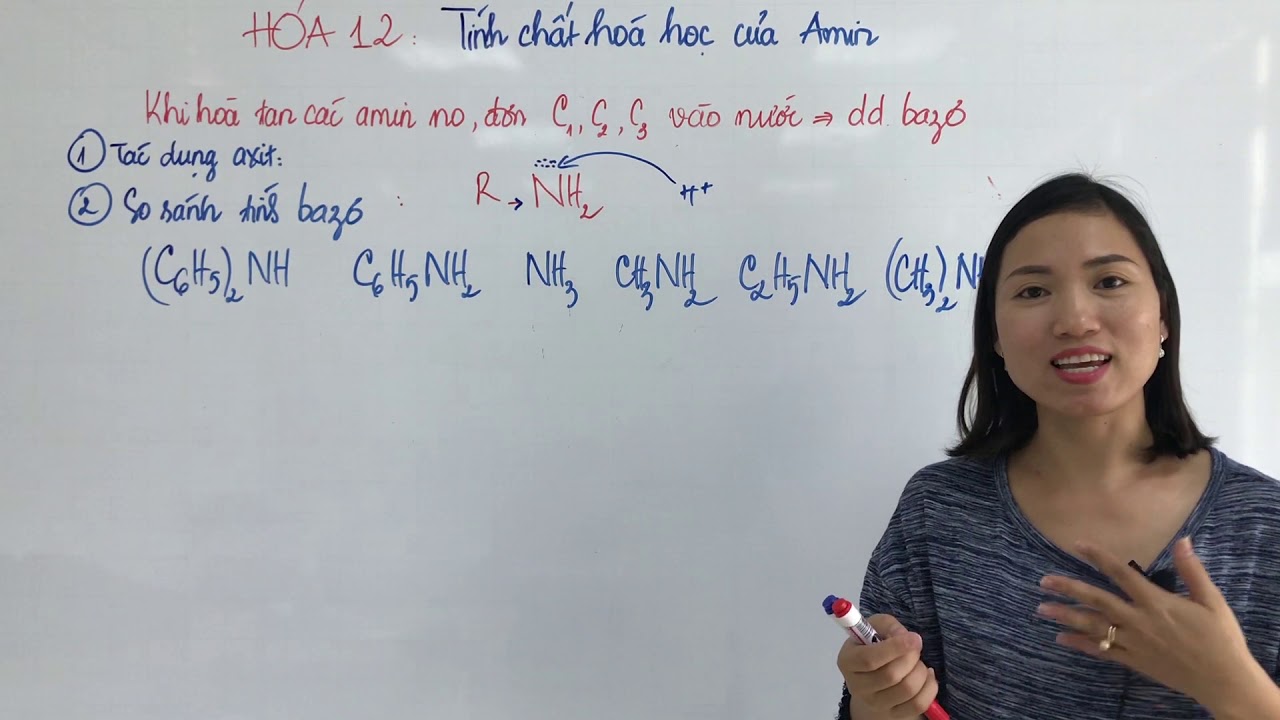 HÓA 12: Tính chất hoá học của Amin
Khi hoà tan các amin no, đơn C₁, C₂, C₃ vào nước ⇒ dd bazơ
① Tác dụng axit:
R → NH₂ H⁺
② So sánh tính bazơ :
(C₆H₅)₂NH C₆H₅NH₂ NH₃ CH₃NH₂ C₂H₅NH₂ (CH₃)₂NH